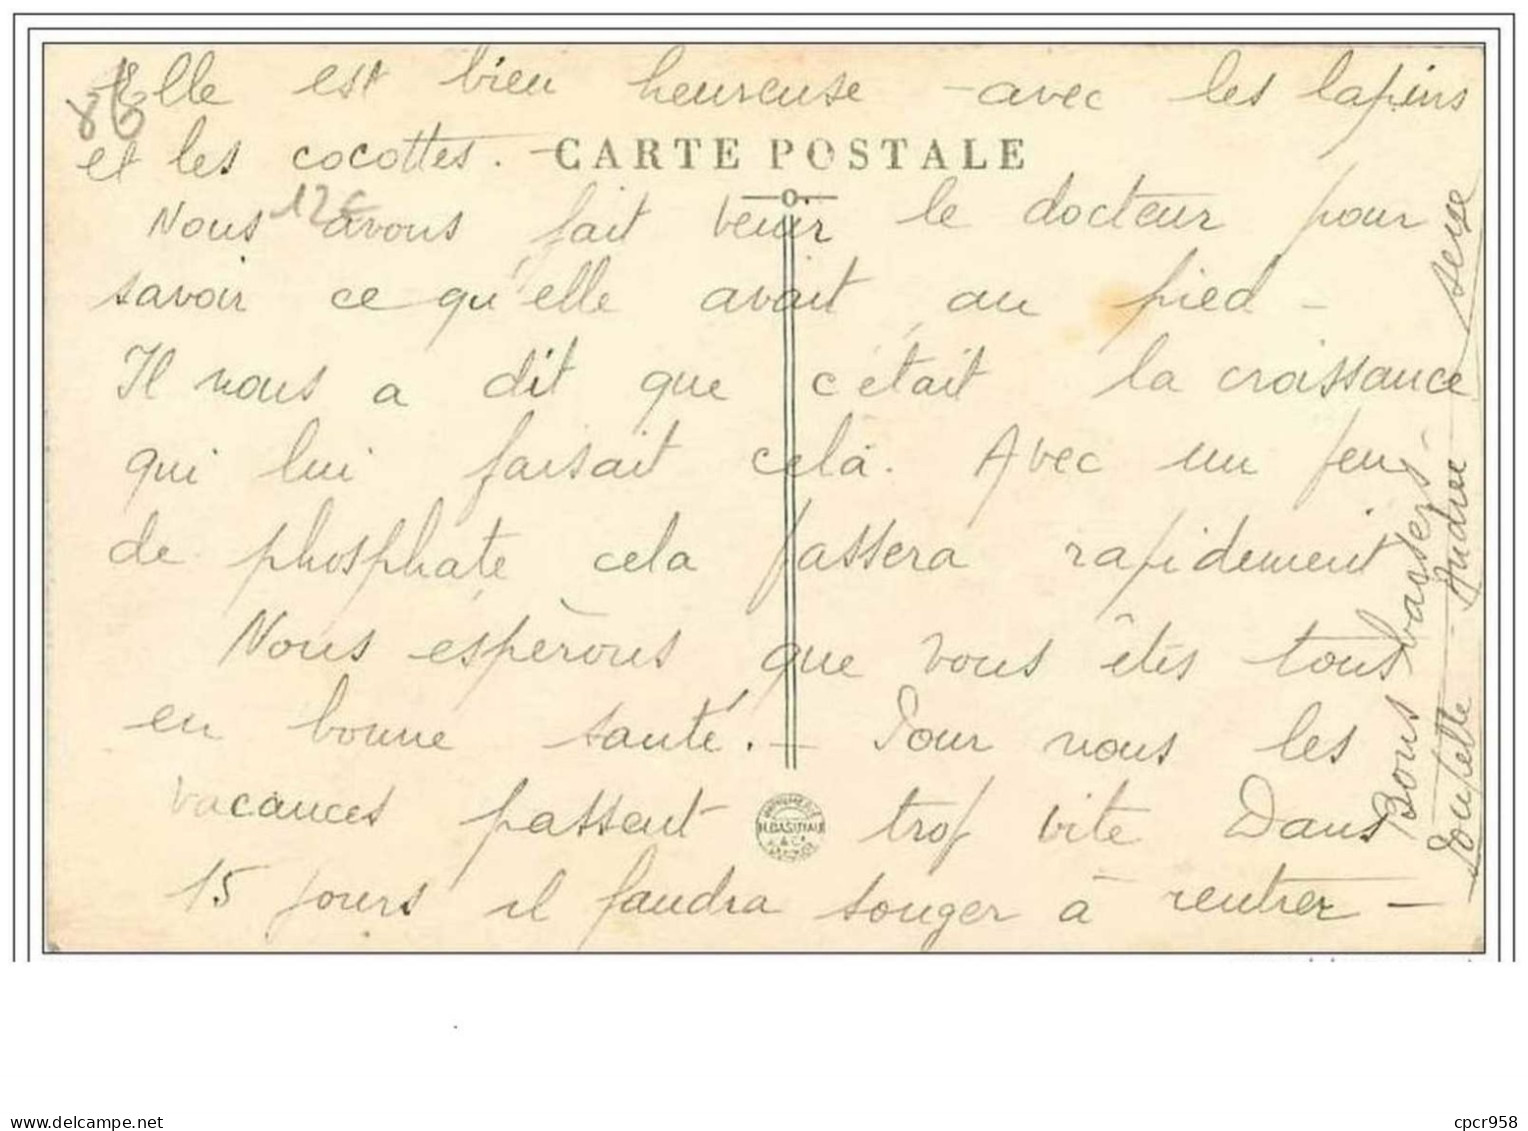 Elle est bien heureuse - avec les lapins
et les cocottes. -
CARTE POSTALE
86
12€
Nous avons fait venir le docteur pour
savoir ce qu'elle avait au pied -
Il nous a dit que c'était la croissance
qui lui faisait celà. Avec un peu
de phosphate cela passera rapidement
Nous espèrons que vous êtes tous
en bonne santé. - Pour nous les
vacances passent trop vite Dans
15 jours il faudra songer à rentrer -
Bons baisers
Poupette - Andrée
IMPRIMERIE
& Cie
www.delcampe.net
cpcr958